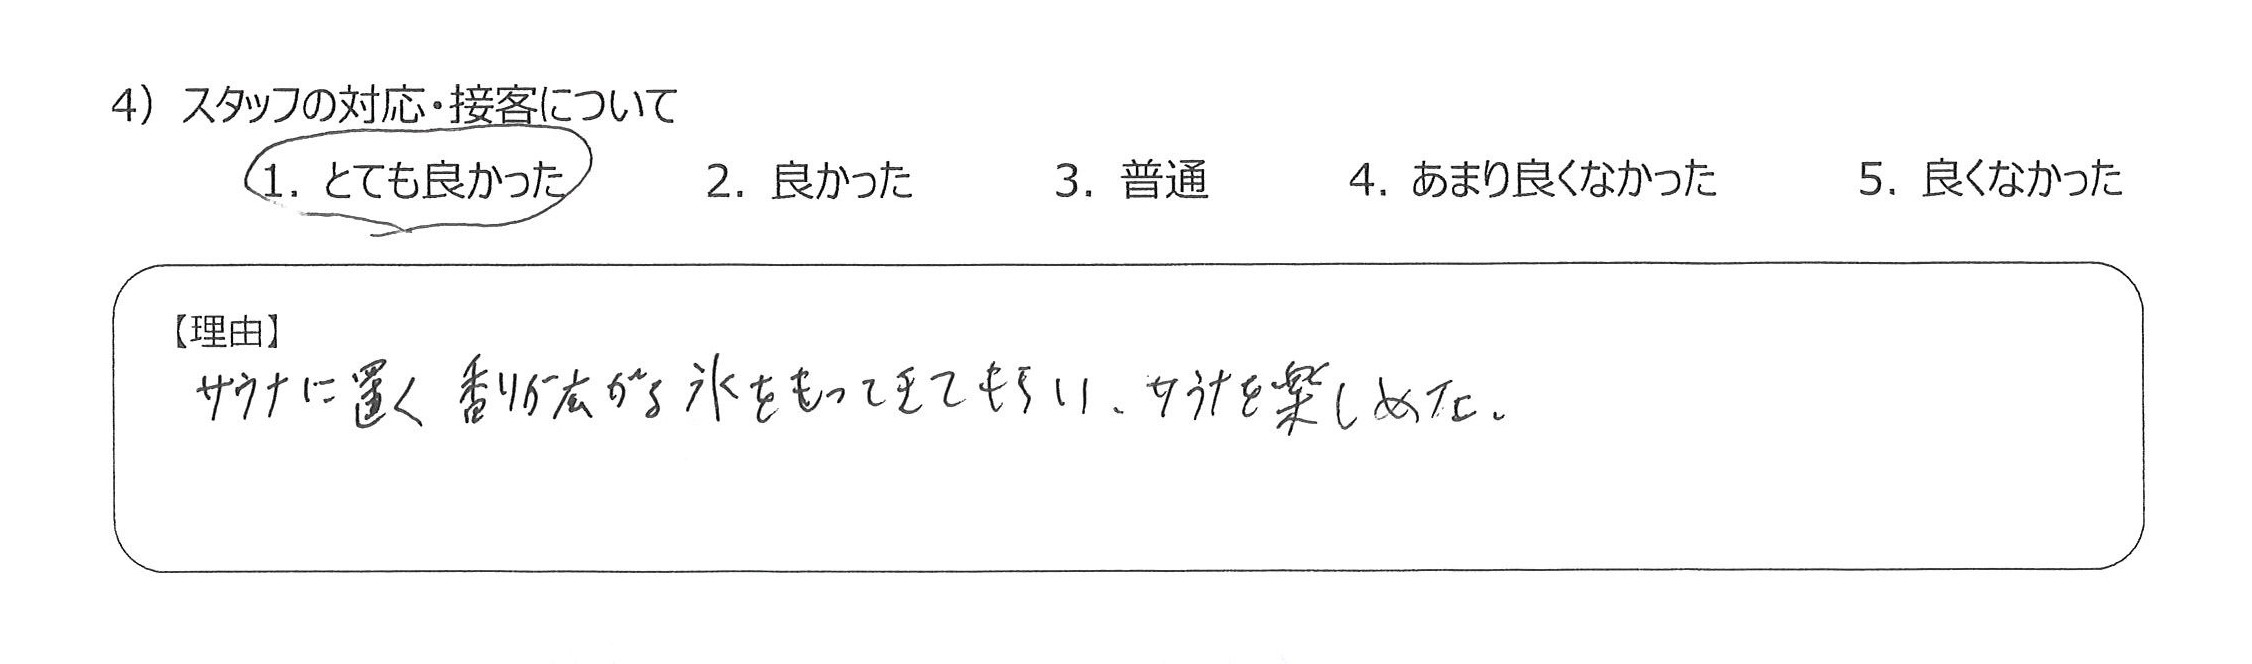 4）スタッフの対応・接客について
1. とても良かった　2. 良かった　3. 普通　4. あまり良くなかった　5. 良くなかった
【理由】
サウナに置く香りが広がる氷をもってきてもらい、サウナを楽しめた。